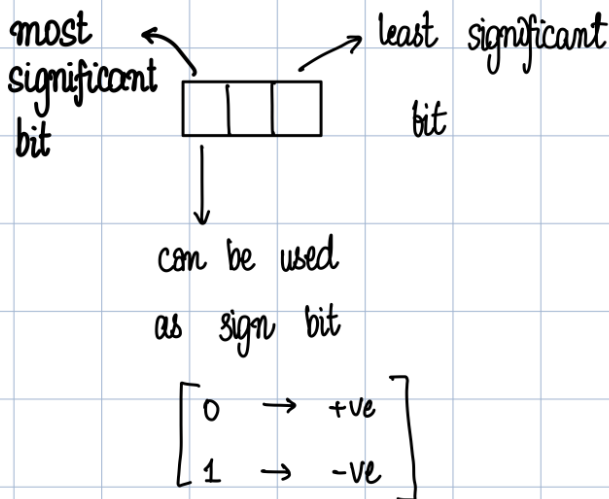 most
significant
bit
least significant
bit
can be used
as sign bit
0 → +ve
1 → -ve